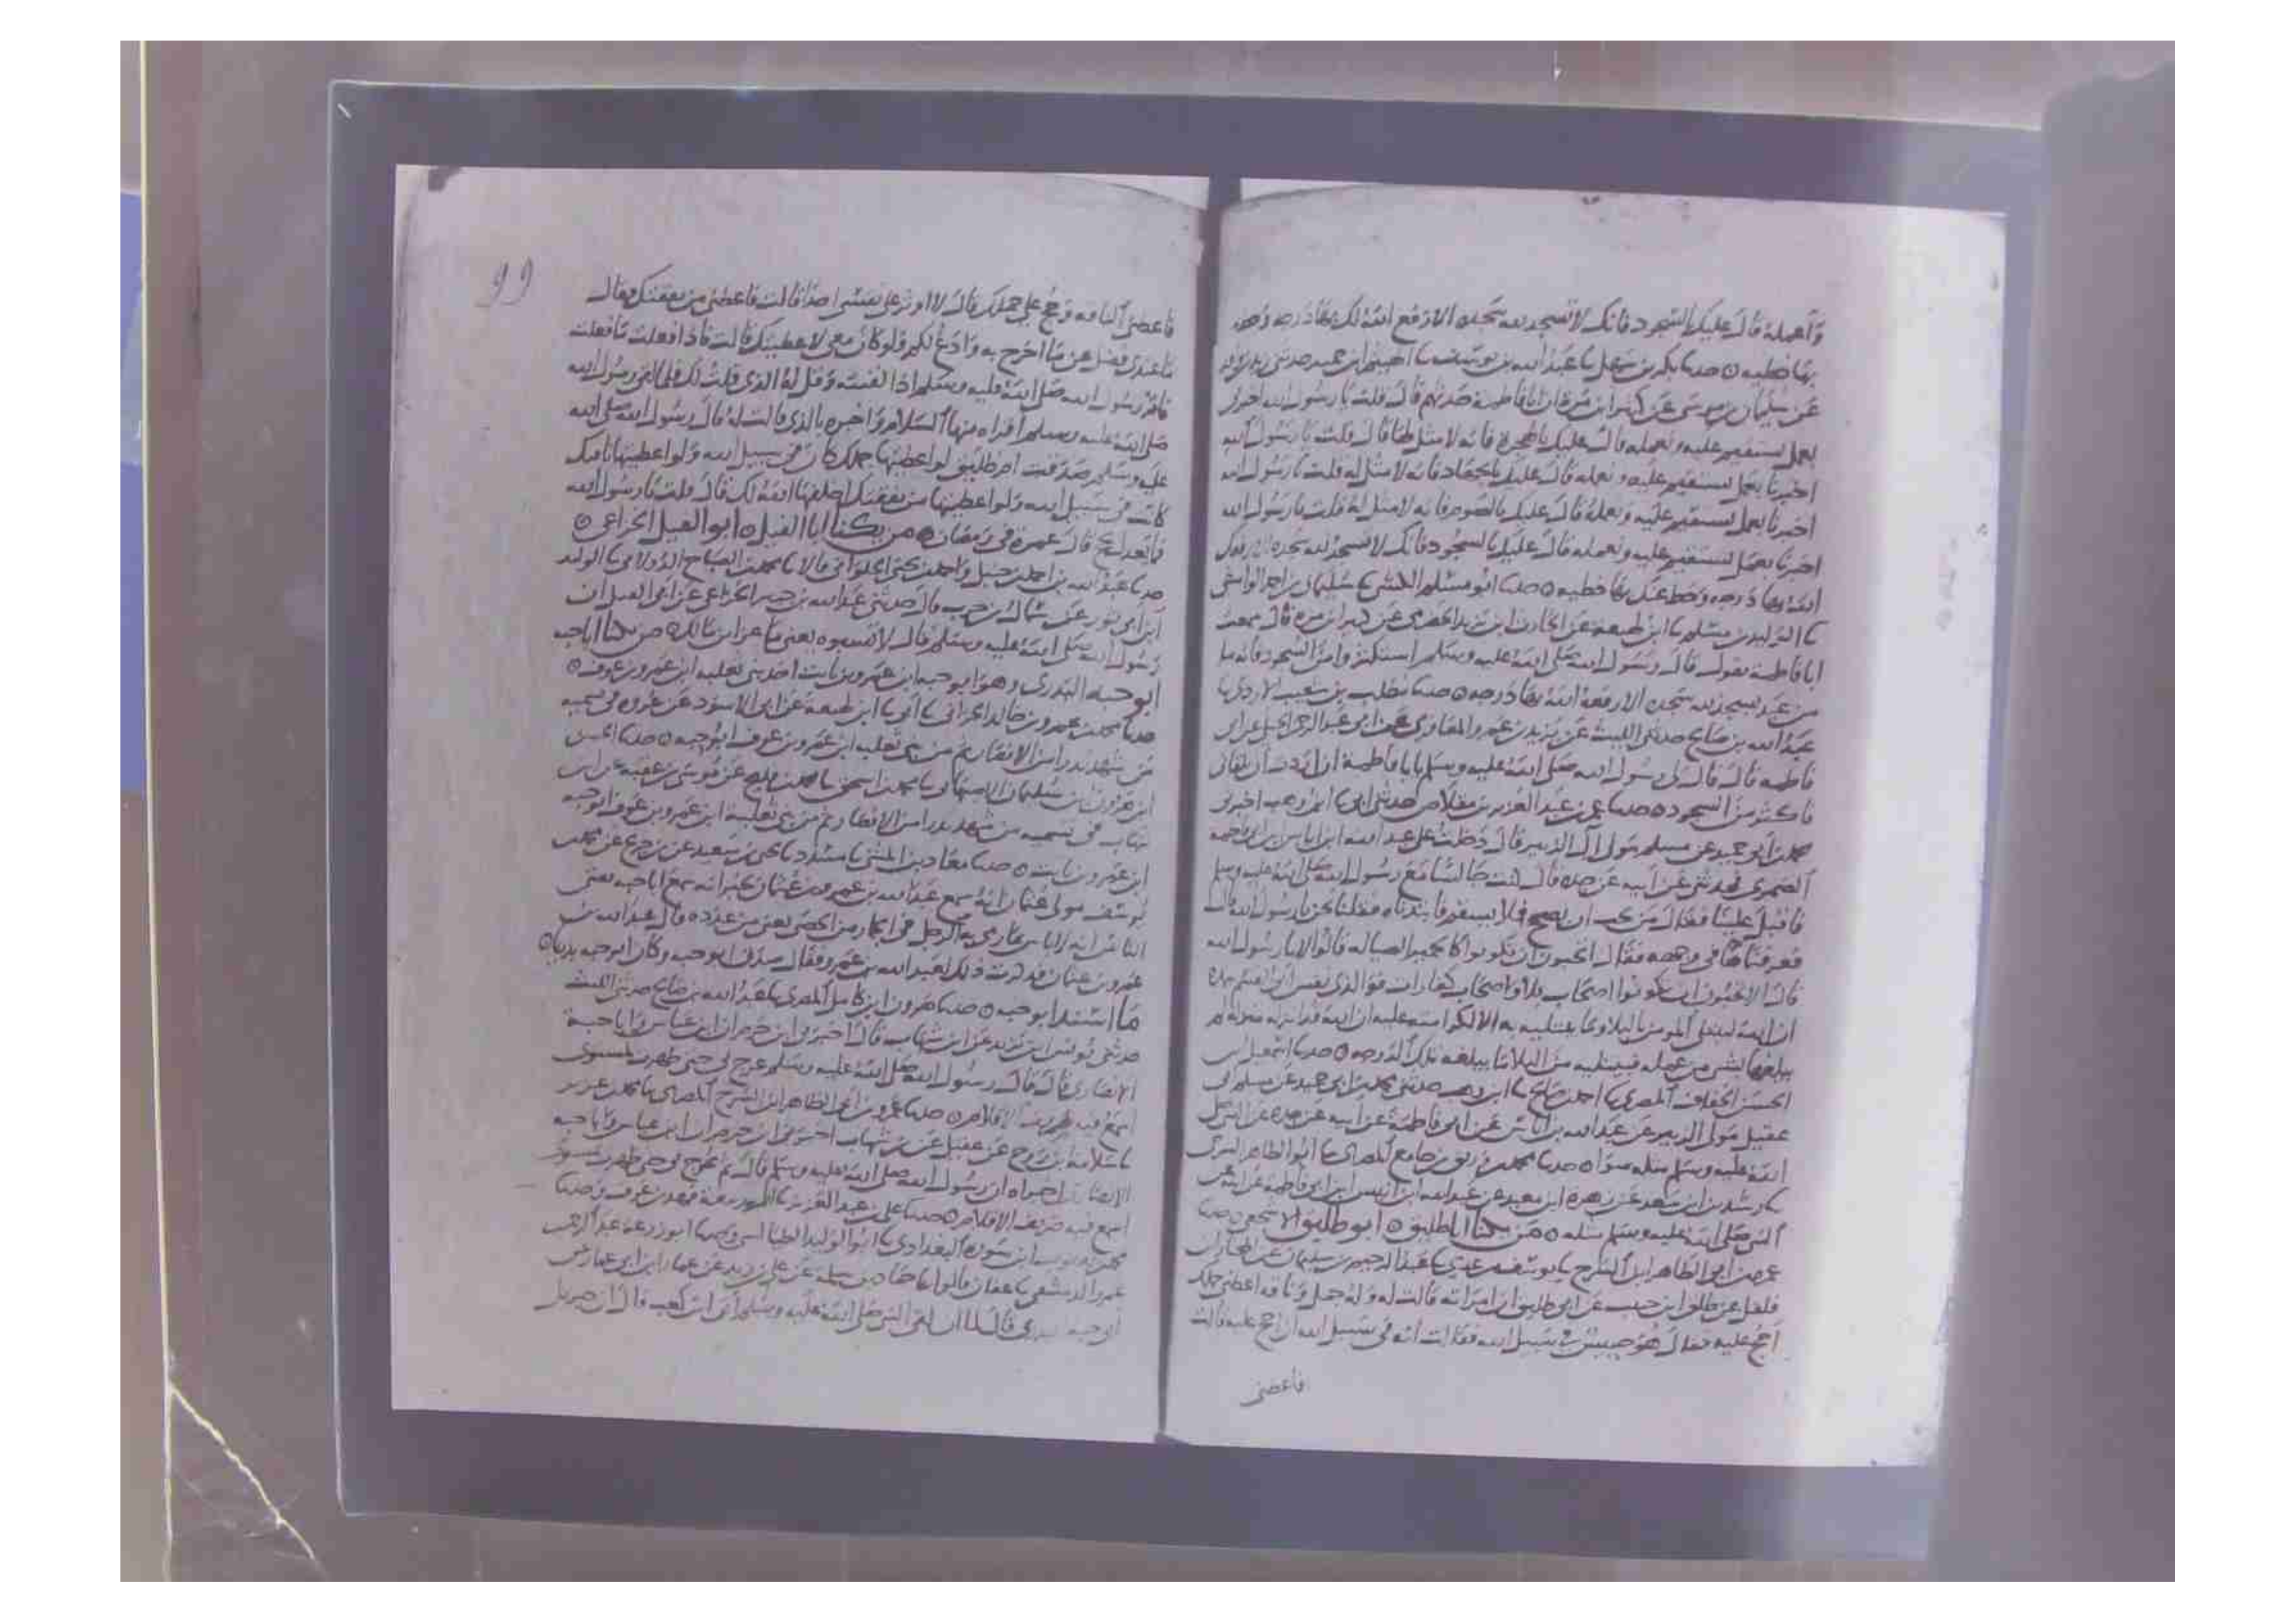 وأعمله قال عليك بالسجود فانك لا تسجد لله سجده الا رفع الله لك بها درجه وحط
بها خطيه ۞ حدثنا بكر بن سهل ثنا عبد الله بن يوسف ثنا الهيثم ابن حميد حدثني زيد بن واقد
عن سليمان بن موسى عن كثير ابن مرة ان ابا فاطمة حدثهم قال قلت يا رسول الله اخبرني
بعمل نستقيم عليه ونعمله قال عليك بالهجرة فانه لا مثل لها قال قلت يا رسول الله
اخبرنا بعمل نستقيم عليه ونعمله قال عليك بالجهاد فانه لا مثل له قلت يا رسول الله
اخبرنا بعمل نستقيم عليه ونعمله قال عليك بالصوم فانه لا مثل له قلت يا رسول الله
اخبرنا بعمل نستقيم عليه ونعمله قال عليك بالسجود فانك لا تسجد لله سجده الا رفعك
الله بها درجه وحط عنك بها خطيه ۞ حدثنا ابو مسلم الكشي ثنا سليمان بن احمد الواسطي
ثنا الوليد بن مسلم ثنا ابن لهيعة عن الحارث ابن يزيد الحضرمي عن كثير ابن مره قال سمعت
ابا فاطمة يقول قال رسول الله صلى الله عليه وسلم استكثروا من السجود فانه ما
من عبد يسجد لله سجده الا رفعه الله بها درجه ۞ حدثنا مطلب بن شعيب الازدي ثنا
عبد الله بن صالح حدثني الليث عن يزيد بن عمرو المعافري عن ابي عبد الرحمن الحبلي عن ابي
فاطمه قال قال لي رسول الله صلى الله عليه وسلم يا ابا فاطمة ان اردت ان تلقاني
فاكثر من السجود ۞ حدثنا عمر بن عبد العزيز بن مقلاص حدثني ابي ثنا ابن وهب اخبرني
محمد بن ابي حميد عن مسلم مولى آل الزبير قال دخلت على عبد الله ابن اياس بن ابي فاطمه
الضمري فحدثني عن ابيه عن جده قال كنت جالسا مع رسول الله صلى الله عليه وسلم
فاقبل علينا فقال من يحب ان يصح فلا يسقم فابتدرناه فقلنا نحن يا رسول الله قال
فعرفناها في وجهه فقال اتحبون ان تكونوا كالحمير الصياله قالوا لا يا رسول الله
قال الا تحبون ان تكونوا اصحاب بلاء واصحاب كفارات فوالذي نفس ابي القسم بيده
ان الله ليبتلي المومن بالبلاء وما يبتليه به الا لكرامته عليه ان الله قد انزله منزلة لم
يبلغها بشي من عمله فيبتليه من البلاء ما يبلغه تلك الدرجه ۞ حدثنا اسمعيل بن
الحسن الخفاف المصري ثنا احمد بن صالح ثنا ابن وهب حدثني محمد بن ابي حميد عن مسلم بن ابي
عقيل مولى الزبير عن عبد الله بن اياس عن ابي فاطمة عن ابيه عن جده عن النبي صلى
الله عليه وسلم مثله سوا ۞ حدثنا محمد بن رزيق بن جامع المصري ثنا ابو الطاهر السرح
ثنا رشدين ابن سعد عن زهرة ابن معبد عن عبد الله ابن انيس ابن ابي فاطمه عن ابيه عن
النبي صلى الله عليه وسلم مثله ۞ من يكنا ابا طليق ۞ ابو طليق الاشجعي ۞ حدثنا
عمرو بن ابي الطاهر ابن السرح ثنا يوسف بن عدي ثنا عبد الرحيم بن سليمان عن المختار بن
فلفل عن طلق ابن حبيب عن ابي طليق ان امراته قالت له وله جمل وناقه اعطني جملك
احج عليه فقال هو حبيس في سبيل الله فقالت انه في سبيل الله ان احج عليه قالت
فاعطني
99
فاعطني الناقه وحج على جملك قال لا اوثر على نفسي احدا قالت فاعطني من نفقتك فقال
ما عندي فضل عن ما اخرج به وادع لكم ولو كان معي لاعطيتك قالت فاذا فعلت ما فعلت
فاقر رسول الله صلى الله عليه وسلم اذا لقيته وقل له الذي قلت لك فلما لقي رسول الله
صلى الله عليه وسلم اقراه منها السلام واخبره بالذي قالت له قال رسول الله صلى الله
عليه وسلم صدقت ام طليق لو اعطيتها جملك كان في سبيل الله ولو اعطيتها ناقتك
كانت في سبيل الله ولو اعطيتها من نفقتك اخلفها الله لك قال قلت يا رسول الله
فما يعدل الحج قال عمرة في رمضان ۞ من يكنا ابا الفيل ۞ ابو الفيل الخزاعي ۞
حدثنا عبد الله بن احمد بن حنبل واحمد بن يحيى الحلواني قالا ثنا محمد بن الصباح الدولابي ثنا الوليد
ابن ابي ثور عن سماك بن حرب قال حدثني عبد الله بن جبير الخزاعي عن ابي الفيل ان
رسول الله صلى الله عليه وسلم قال لا تسبوه يعني ماعز ابن مالك ۞ من يكنا ابا حبه
ابو حبه البدري وهو ابو حبه ابن عمرو بن ثابت احد بني ثعلبه ابن عمرو بن عوف ۞
حدثنا محمد بن عمرو بن خالد الحراني ثنا ابي ثنا ابن لهيعة عن ابي الاسود عن عروه في تسميه
من شهد بدرا من الانصار ثم من بني ثعلبه ابن عمرو بن عوف ابو حبه ۞ حدثنا الحسن
ابن هرون بن سليمان الاصبهاني ثنا محمد بن اسحق ثنا محمد بن فليح عن موسى بن عقبه عن ابن
شهاب في تسميه من شهد بدرا من الانصار ثم من بني ثعلبة ابن عمرو بن عوف ابو حبه
ابن عمرو بن ثابت ۞ حدثنا معاذ بن المثنى ثنا مسدد ثنا يحيى بن سعيد عن بن جريج عن محمد بن
يوسف مولى عثمان انه سمع عبد الله بن عمرو بن عثمان يخبر انه سمع ابا حبه يفتي
الناس انه لا باس بما رمى به الرجل في الجمار من الحصى يعني من عدده قال عبد الله بن
عمرو بن عثمان فذكرت ذلك لعبد الله بن عمرو فقال صدق ابو حبه وكان ابو حبه بدريا ۞
ما اسند ابو حبه ۞ حدثنا هرون ابن كامل المصري ثنا عبد الله بن صالح حدثني الليث
حدثني يونس ابن يزيد عن ابن شهاب قال اخبرني ابن حزم ان ابن عباس وابا حبة
الانصاري قالا قال رسول الله صلى الله عليه وسلم عرج بي حتى ظهرت لمستوى
اسمع فيه صريف الاقلام ۞ حدثنا عمرو بن ابي الطاهر ابن السرح المصري ثنا محمد بن عزيز
ثنا سلامه ابن روح عن عقيل عن بن شهاب اخبرني ابن حزم ان ابن عباس وابا حبه
الانصاري اخبراه ان رسول الله صلى الله عليه وسلم قال ثم عرج بي حتى ظهرت لمستوى
اسمع فيه صريف الاقلام ۞ حدثنا علي بن عبد العزيز ثنا وحدثنا
البغدادي ثنا ابو الوليد الطيالسي وحدثنا ابو زرعة عبد الرحمن بن
عمرو الدمشقي ثنا عفان قالوا ثنا حماد بن سلمة عن علي بن زيد عن عمار ابن ابي عمار عن
ابي حبه البدري قال لما ان لقي النبي صلى الله عليه وسلم ابي ابن كعب قال ان جبريل